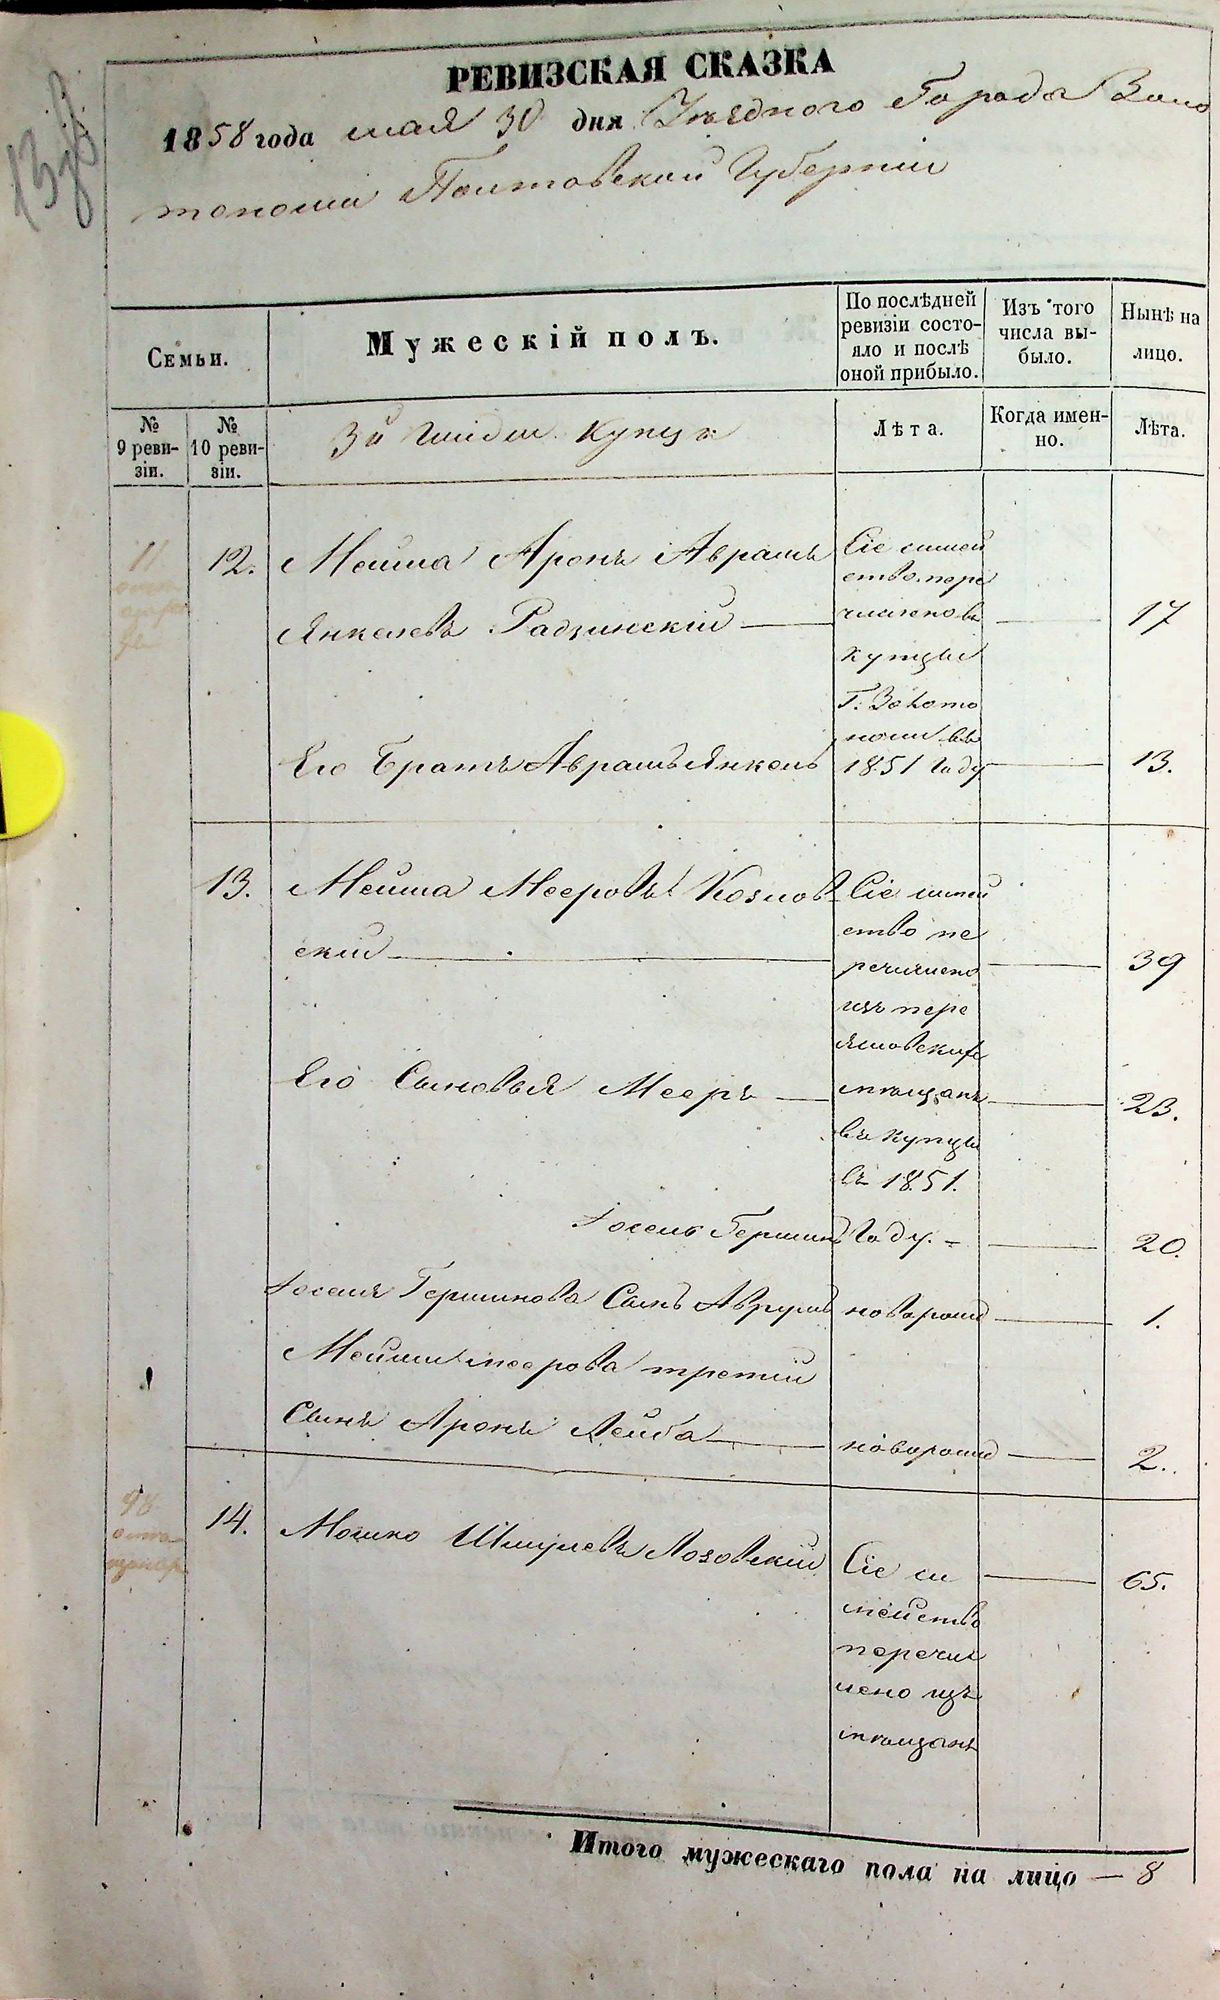 РЕВИЗСКАЯ СКАЗКА
1858 года мая 30 дня Уѣзднаго Города Золо
тоноши Полтавской Губерніи
Семьи.
Мужескій полъ.
По послѣдней ревизіи состо-
яло и послѣ оной прибыло.
Изъ того числа вы-
было.
Нынѣ на лицо.
№ 9 реви-
зіи.
№ 10 реви-
зіи.
3й Гильдіи Купцы
Лѣта.
Когда имен-
но.
Лѣта.
11
12.
Мойша Аронъ Аврамъ
Янкелевъ Радзинскій
Сіе семей
ство пере
числено въ
купцы
Г. Золото
ноши въ
1851 Году
17
Его Братъ Аврамъ Янкель
13.
13.
Мейша Мееровъ Козлов
скій
Сіе семей
ство пе
речислено
изъ пере
яславскихъ
мѣщанъ
въ купцы
въ 1851.
Году.
39
Его Сыновья Мееръ
23.
Іосель Гершинъ
20.
Іоселя Гершинова Сынъ Аврумъ
новорожд
1.
Мейши Меерова третій
Сынъ Аронъ Лейба
новорожд
2.
14.
Мошко Шмулевъ Лозовскій
Сіе се
мейство
перечис
лено изъ
мѣщанъ
65.
Итого мужескаго пола на лицо — 8